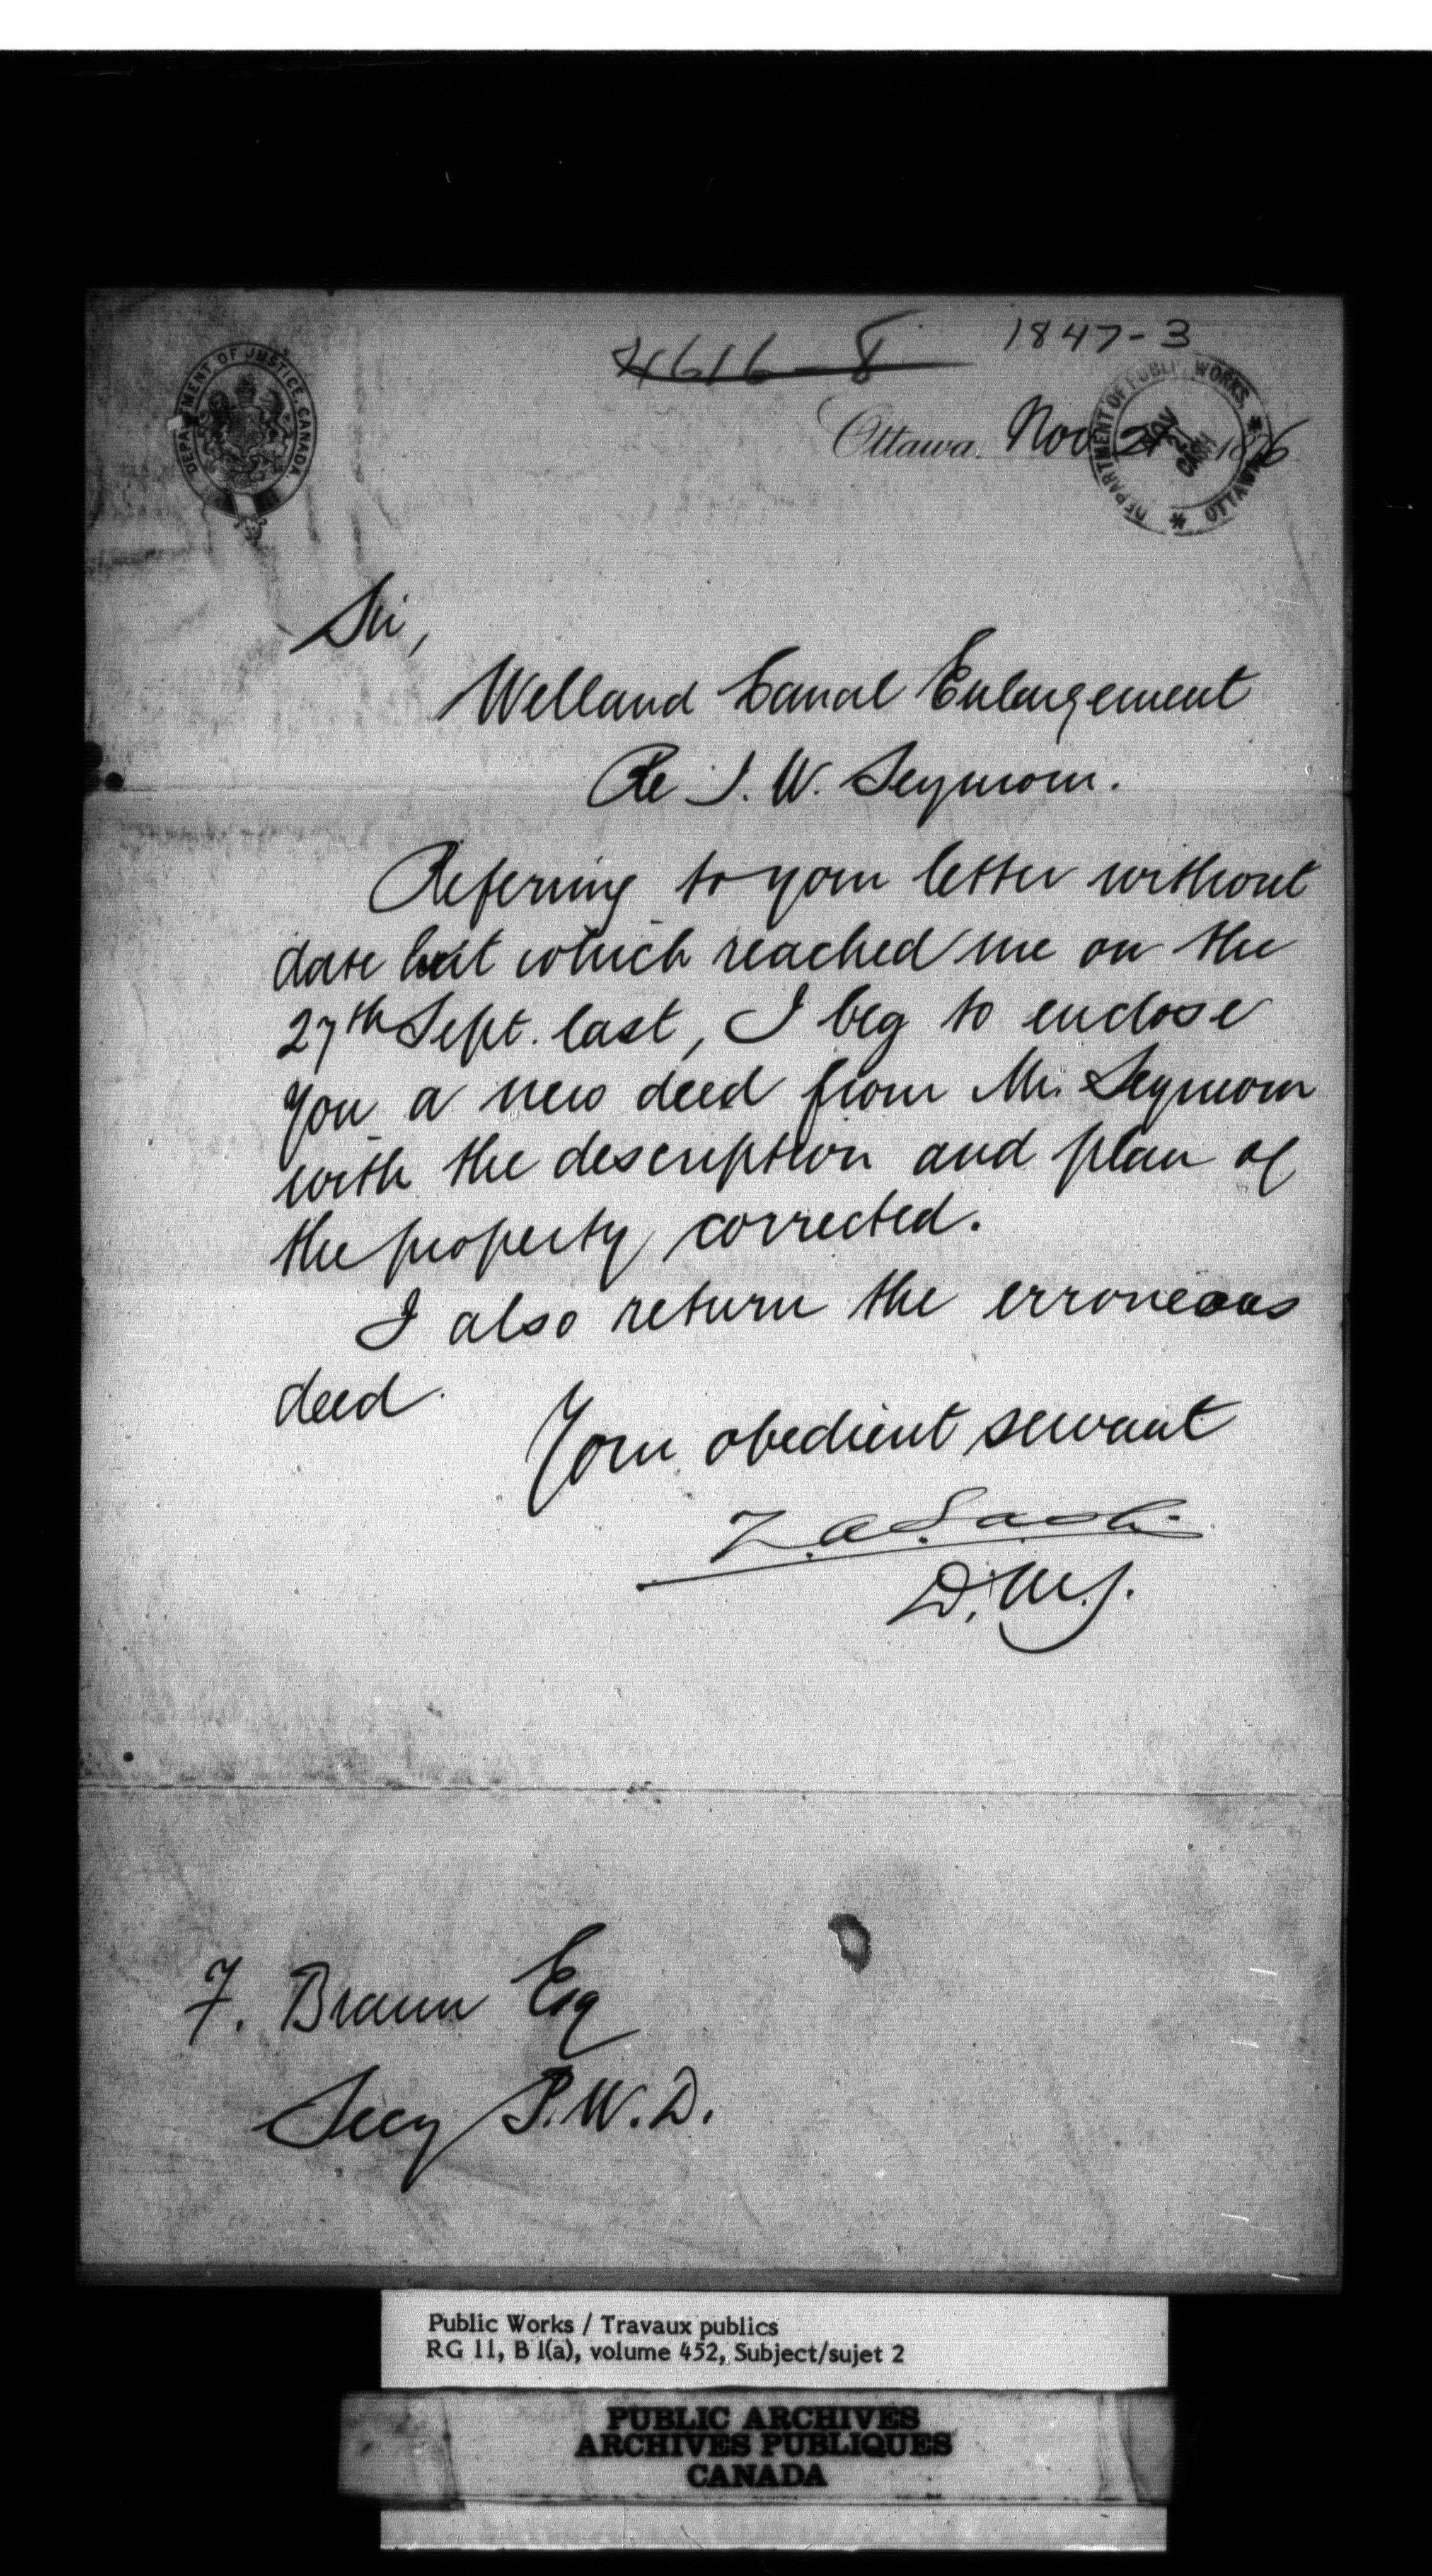 4616-8
1847-3
DEPARTMENT OF JUSTICE, CANADA.
DEPARTMENT OF PUBLIC WORKS, OTTAWA
NOV
21
Ottawa. Nov 21 1876
Sir,
Welland Canal Enlargement
Re J. W. Seymour.
Referring to your letter without
date but which reached me on the
27th Sept. last, I beg to enclose
you a new deed from Mr. Seymour
with the description and plan of
the property corrected.
I also return the erroneous
deed.
Your obedient servant
Z. A. Lash
D.M.J.
F. Braun Esq
Secy P.W.D.
Public Works / Travaux publics
RG 11, B 1(a), volume 452, Subject/sujet 2
PUBLIC ARCHIVES
ARCHIVES PUBLIQUES
CANADA